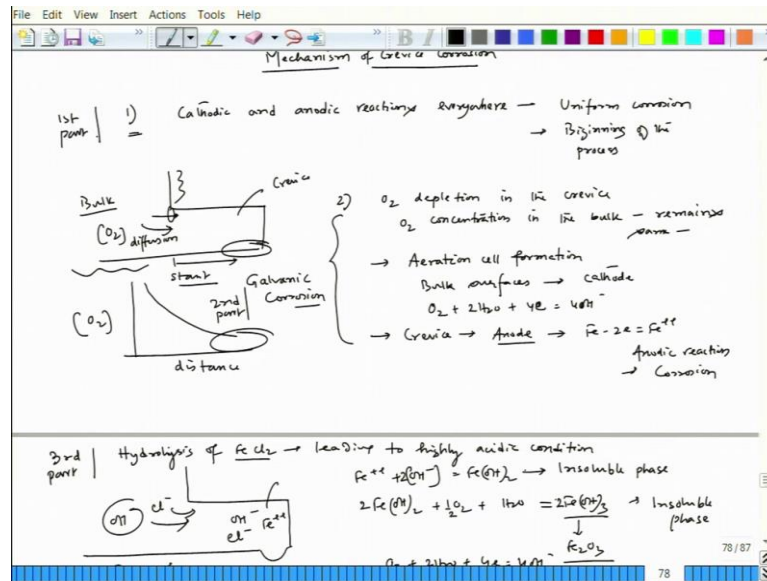 File Edit View Insert Actions Tools Help
Mechanism of Crevice Corrosion
1st part | 1) Cathodic and anodic reactions everywhere — Uniform corrosion
→ Biginning of the process
Bulk
Crevice
(O2) diffusion
start
2) O2 depletion in the crevice
O2 concentration in the bulk — remains same —
→ Aeration cell formation
Bulk surfaces → cathode
O2 + 2H2O + 4e = 4OH-
→ Crevice → Anode → Fe - 2e = Fe++
Anodic reaction
→ Corrosion
2nd part | Galvanic Corrosion
(O2)
distance
3rd part | Hydrolysis of FeCl2 → leading to highly acidic condition
Fe++ + 2[OH-] = Fe(OH)2 → Insoluble phase
2Fe(OH)2 + 1/2 O2 + H2O = 2Fe(OH)3 → Insoluble phase
↓
Fe2O3
OH- Cl-
OH- Fe++
Cl-
O2 + 2H2O + 4e = 4OH-
78/87
78